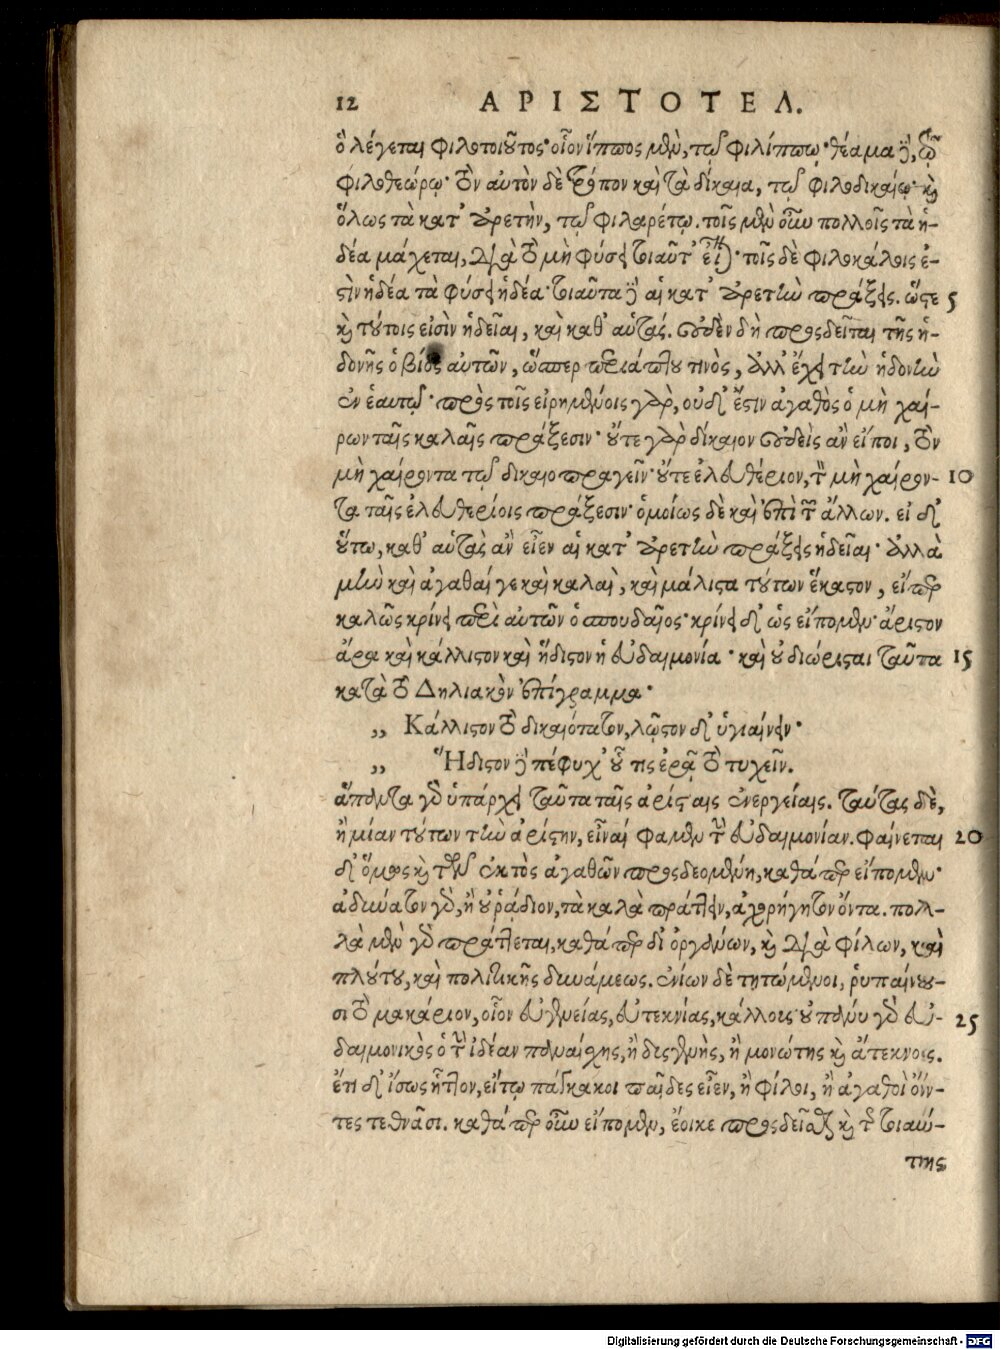 12 ΑΡΙΣΤΟΤΕΛ.
ὃ λέγεται φιλοτοιοῦτος· οἷον ἵππος μὲν, τῷ φιλίππῳ· θέαμα δὲ, τῷ
φιλοθεώρῳ· τὸν αὐτὸν δὲ τρόπον καὶ τὰ δίκαια, τῷ φιλοδικαίῳ· καὶ
ὅλως τὰ κατ' ἀρετὴν, τῷ φιλαρέτῳ. τοῖς μὲν οὖν πολλοῖς τὰ ἡ-
δέα μάχεται, διὰ τὸ μὴ φύσει τοιαῦτ' εἶναι· τοῖς δὲ φιλοκάλοις ἐ-
στὶν ἡδέα τὰ φύσει ἡδέα· τοιαῦται δὲ αἱ κατ' ἀρετὴν πράξεις. ὥςτε 5
καὶ τούτοις εἰσὶν ἡδεῖαι, καὶ καθ' αὑτάς. οὐδὲν δὴ προςδεῖται τῆς ἡ-
δονῆς ὁ βίος αὐτῶν, ὥσπερ περιάπτου τινὸς, ἀλλ' ἔχει τὴν ἡδονὴν
ἐν ἑαυτῷ· πρὸς τοῖς εἰρημένοις γὰρ, οὐδ' ἔστιν ἀγαθὸς ὁ μὴ χαί-
ρων ταῖς καλαῖς πράξεσιν· οὔτε γὰρ δίκαιον οὐδεὶς ἂν εἴποι, τὸν
μὴ χαίροντα τῷ δικαιοπραγεῖν· οὔτε ἐλευθέριον, τὸν μὴ χαίρον- 10
τα ταῖς ἐλευθερίοις πράξεσιν· ὁμοίως δὲ καὶ ἐπὶ τῶν ἄλλων. εἰ δ'
οὕτω, καθ' αὑτὰς ἂν εἶεν αἱ κατ' ἀρετὴν πράξεις ἡδεῖαι· ἀλλὰ
μὴν καὶ ἀγαθαί γε καὶ καλαὶ, καὶ μάλιστα τούτων ἕκαστον, εἴπερ
καλῶς κρίνει περὶ αὐτῶν ὁ σπουδαῖος· κρίνει δ' ὡς εἴπομεν· ἄριστον
ἄρα καὶ κάλλιστον καὶ ἥδιστον ἡ εὐδαιμονία· καὶ οὐ διώρισται ταῦτα 15
κατὰ τὸ Δηλιακὸν ἐπίγραμμα·
„ Κάλλιστον τὸ δικαιότατον, λῷστον δ' ὑγιαίνειν·
„ Ἥδιστον δὲ πέφυχ' οὗ τις ἐρᾷ τὸ τυχεῖν.
ἅπαντα γὰρ ὑπάρχει ταῦτα ταῖς ἀρίσταις ἐνεργείαις. ταύτας δὲ,
ἢ μίαν τούτων τὴν ἀρίστην, εἶναί φαμεν τὴν εὐδαιμονίαν. φαίνεται 20
δ' ὅμως καὶ τῶν ἐκτὸς ἀγαθῶν προςδεομένη, καθάπερ εἴπομεν·
ἀδύνατον γὰρ, ἢ οὐ ῥάδιον, τὰ καλὰ πράττειν, ἀχορήγητον ὄντα. πολ-
λὰ μὲν γὰρ πράττεται, καθάπερ δι' ὀργάνων, καὶ διὰ φίλων, καὶ
πλούτου, καὶ πολιτικῆς δυνάμεως. ἐνίων δὲ τητώμενοι, ῥυπαίνου-
σι τὸ μακάριον, οἷον εὐγενείας, εὐτεκνίας, κάλλους· οὐ πάνυ γὰρ εὐ- 25
δαιμονικὸς ὁ τὴν ἰδέαν παναίσχης, ἢ δυςγενὴς, ἢ μονώτης καὶ ἄτεκνος.
ἔτι δ' ἴσως ἧττον, εἴ τῳ πάγκακοι παῖδες εἶεν, ἢ φίλοι, ἢ ἀγαθοὶ ὄν-
τες τεθνᾶσι. καθάπερ οὖν εἴπομεν, ἔοικε προςδεῖσθαι καὶ τῆς τοιαύ-
της
Digitalisierung gefördert durch die Deutsche Forschungsgemeinschaft - DFG